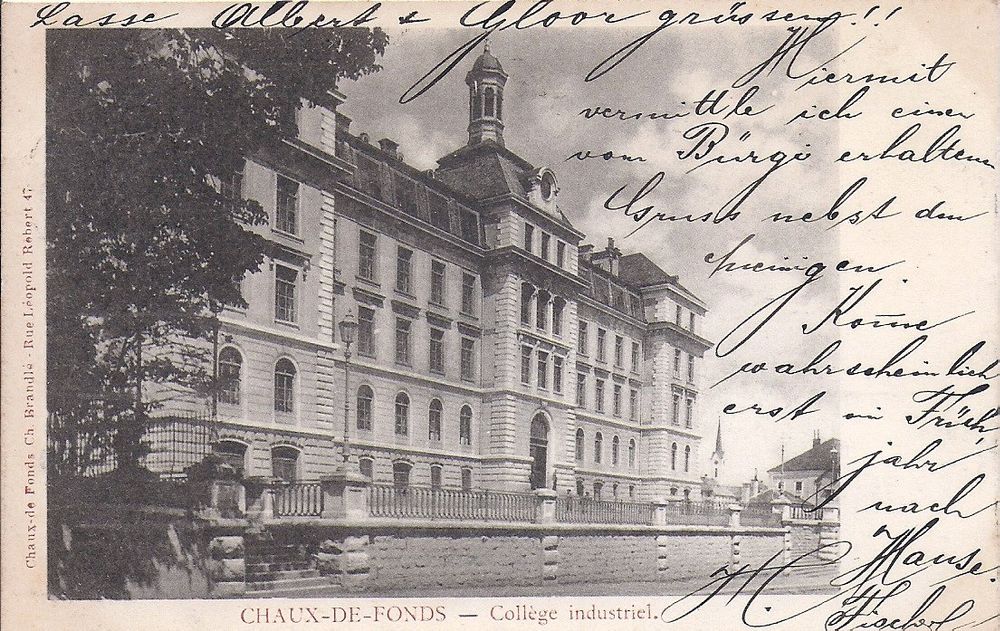 Lasse Albert & Gloor grüssen!!
Hiermit
vermittle ich einen
vom Bürgi erhaltenen
Gruss nebst dem
meinigen
Kom̅e
wahrscheinlich
erst im Früh
jahr
nach
Hause.
H.
Chaux-de Fonds Ch. Brandlé - Rue Léopold Robert 47.
CHAUX-DE-FONDS — Collège industriel.